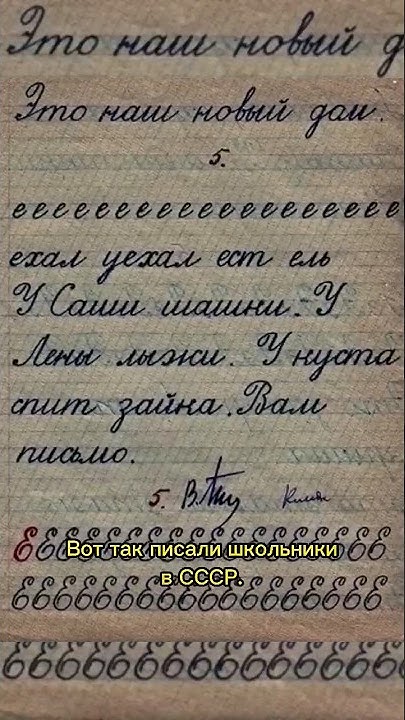 Это наш новый д
Это наш новый дом.
5.
е е е е е е е е е е е е е е е е е е е
ехал уехал ест ель
У Саши шашки. У
Лены лыжи. У куста
спит зайка. Вам
письмо.
5.
Е Е Е Е Е Е Е Е Е Е Е Е Е Е Е Е Е
Вот так писали школьники
в СССР.
Е Е Е Е Е Е Е Е Е Е Е Е Е Е Е Е Е
Е Е Е Е Е Е Е Е Е Е Е Е Е Е